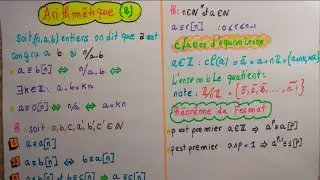 Arithmétique (2)
soit (n,a,b) entiers on dit que a est
congru a b si n/a-b
a ≡ b[n] ⟺ n/a-b
⟺ a-b = kn
∃k∈ℤ: a-b = kn
th: soit a,b,c,a',b',c' ∈ ℕ
a ≡ a[n]
a ≡ b[n] ⟺ b ≡ a[n]
th: n∈ℕ* et a∈ℕ
a ≡ r[n] : 0≤r≤n-1
classes d'équivalence
a∈ℤ : cl(a) = a+nℤ = {a+nk, k∈ℤ}
L'ensemble quotient:
note: ℤ/nℤ = {0̄, 1̄, 2̄, ..., n-1}
théorème de Fermat
p est premier a∈ℤ ⇒ aᵖ ≡ a[p]
p est premier a∧p = 1 ⇒ aᵖ⁻¹ ≡ 1[p]